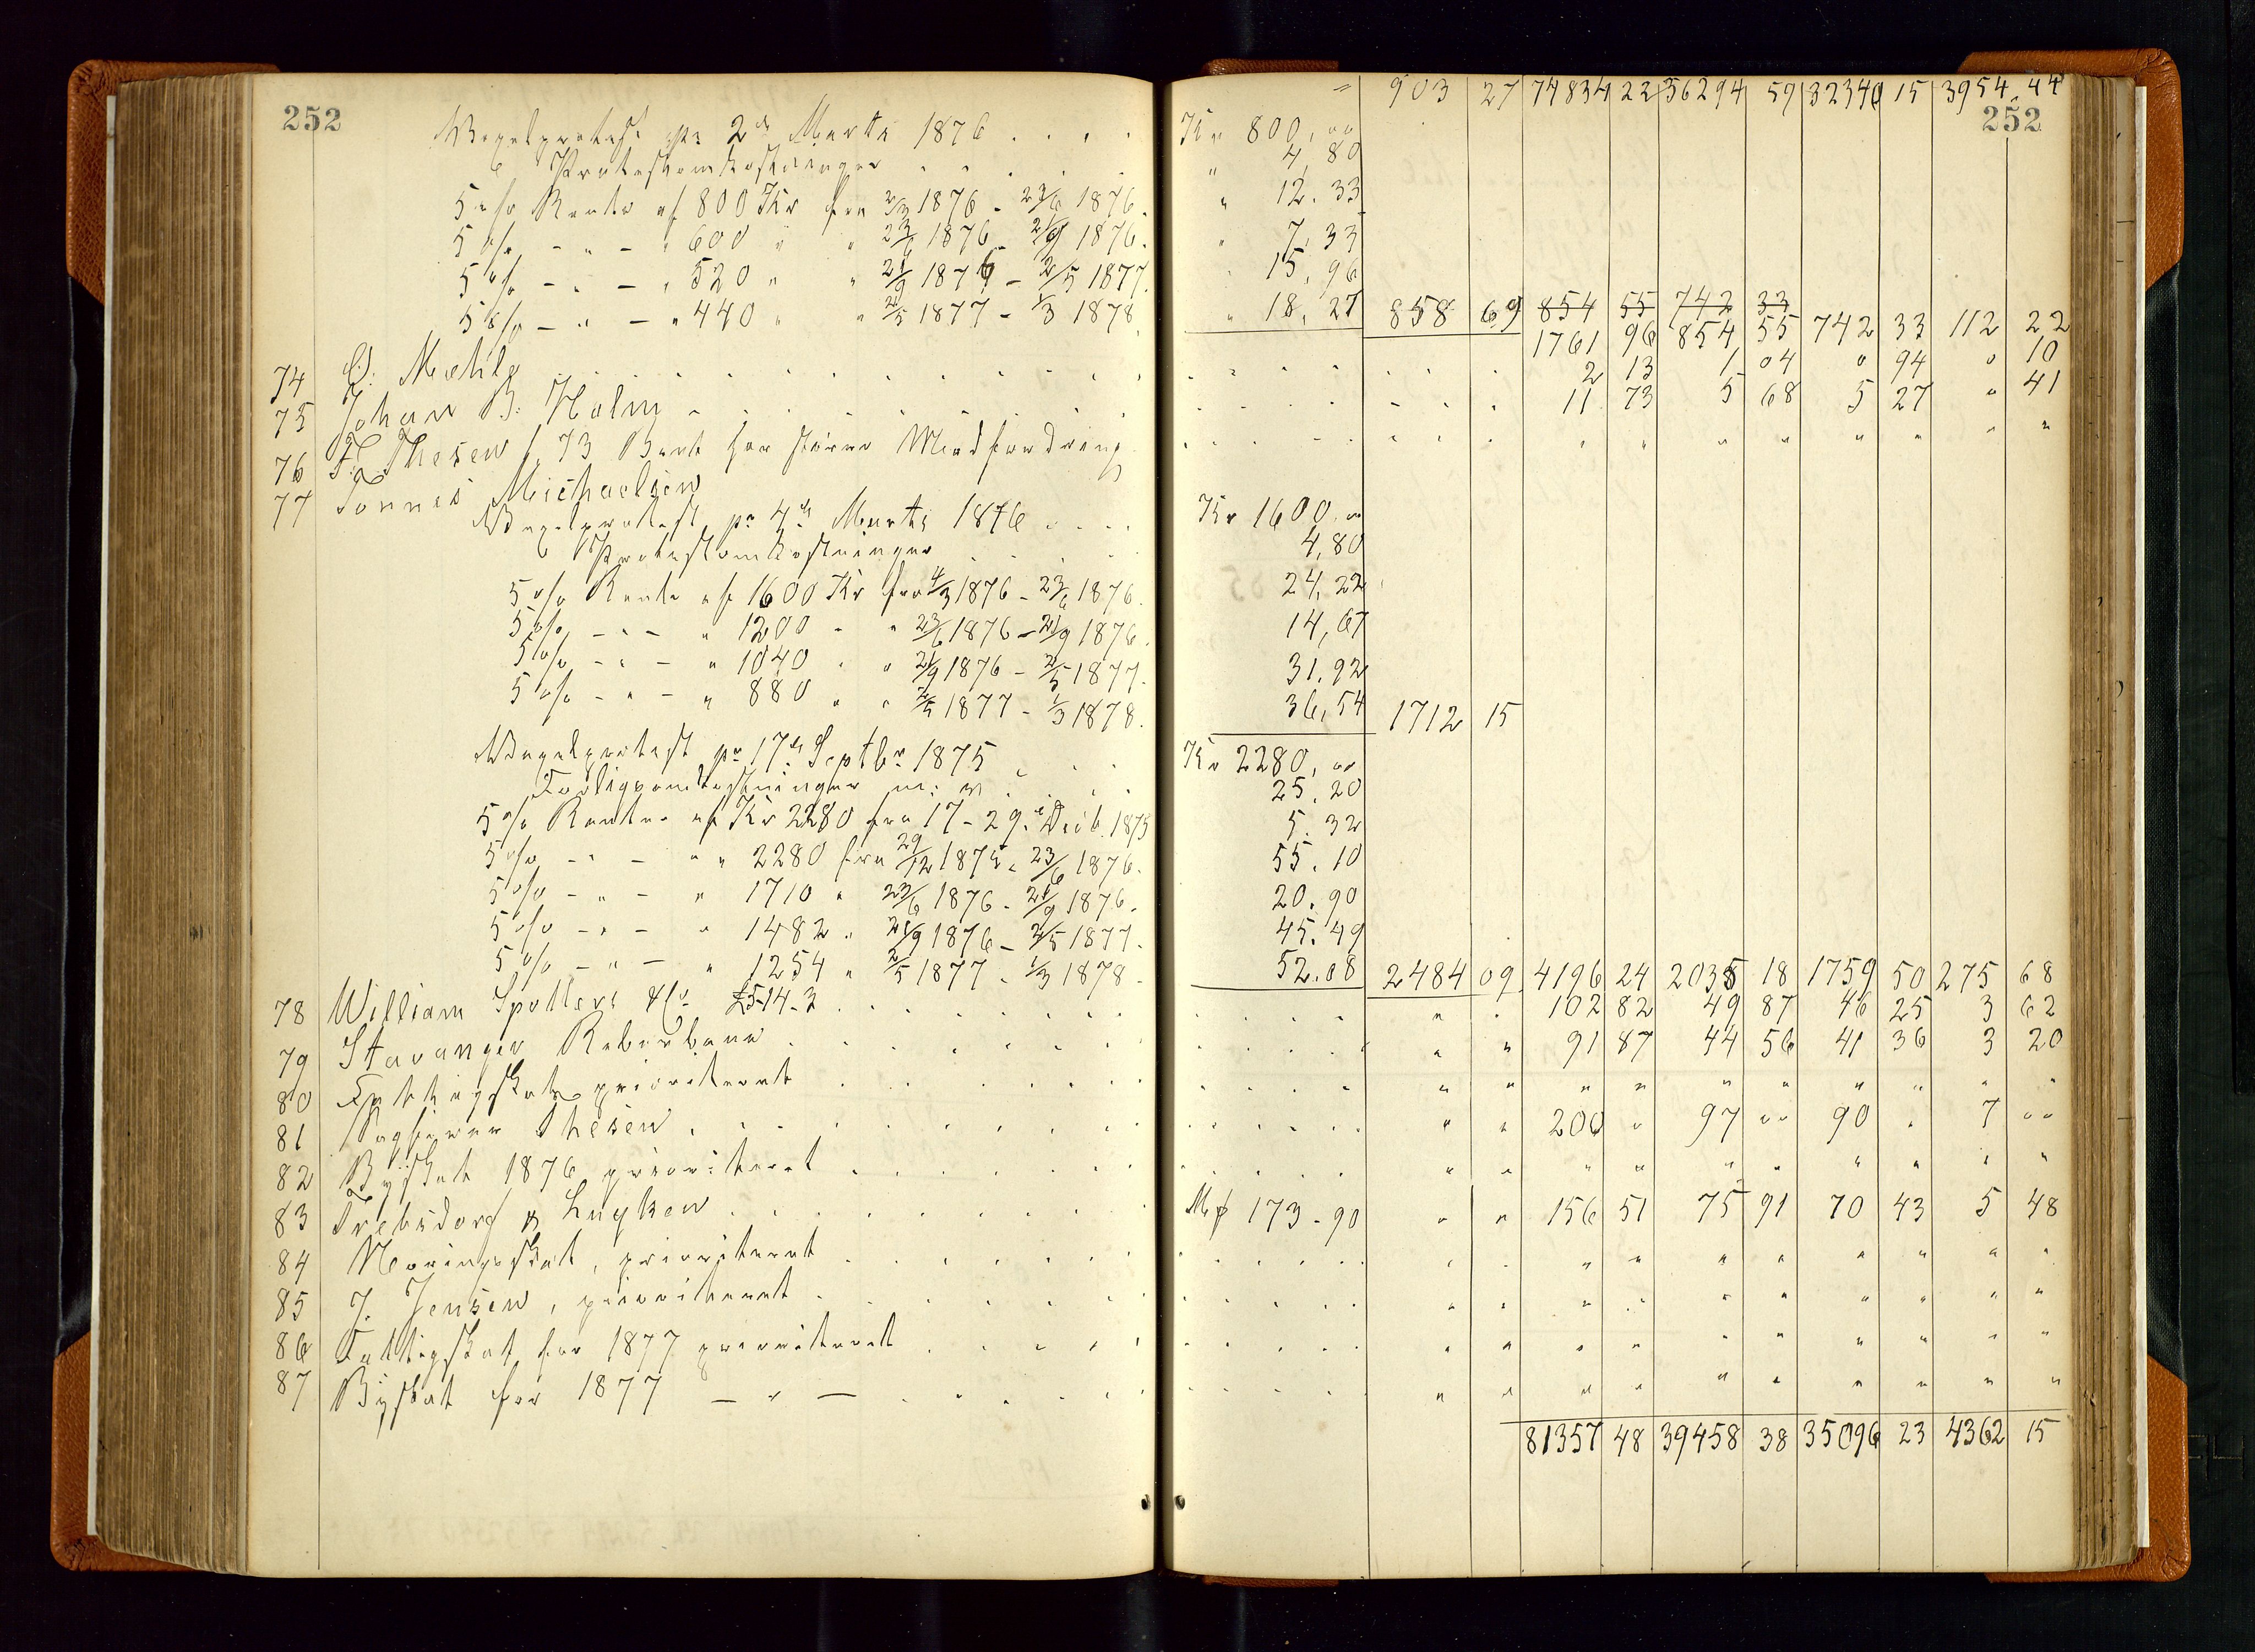 903 27 74834 22 36294 59 32340 15 3954 44
252 252
Vexelprotest pr 2den Marts 1876 . . . . Kr 800,00
Protestomkostninger . . . . . " 4,80
5 o/o Rente af 800 Kr fra 2/3 1876 - 23/6 1876. " 12.33
5 o/o - " - " 600 " " 23/6 1876 - 21/9 1876. " 7,33
5 o/o - " - " 520 " " 21/9 1876 - 2/5 1877. " 15,96
5 o/o - " - " 440 " " 2/5 1877 - 1/3 1878. " 18,27 858 69 854 55 742 33
1761 96 854 55 742 33 112 22
74 C. Mæhle . . . . 2 13 1 04 " 94 " 10
75 Johan B. Holm . . . . 11 73 5 68 5 27 " 41
76 F. Thesen f. 73 Bort for større Modfordring . . . . " " " " " " " "
77 Tønnes Michaelsen
Vexelprotest pr 4de Marts 1876 . . . . Kr 1600.00
Protestomkostninger . . . . 4,80
5 o/o Rente af 1600 Kr fra 4/3 1876 - 23/6 1876. 24,22
5 o/o - " - " 1200 " " 23/6 1876 - 21/9 1876. 14,67
5 o/o - " - " 1040 " " 21/9 1876 - 2/5 1877. 31.92
5 o/o - " - " 880 " " 2/5 1877 - 1/3 1878. 36,54 1712 15
Vexelprotest pr 17de Septbr 1875 . . . Kr 2280,00
Forligsomkostninger m: v. . . . . 25.20
5 o/o Rente af Kr 2280 fra 17 - 29de Decb. 1875 5.32
5 o/o - " - " " 2280 fra 29/12 1875 - 23/6 1876. 55.10
5 o/o - " - " 1710 " 23/6 1876 - 21/9 1876. 20.90
5 o/o - " - " 1482 " 21/9 1876 - 2/5 1877. 45.49
5 o/o - " - " 1254 " 2/5 1877 - 1/3 1878. 52.08 2484 09 4196 24 2035 18 1759 50 275 68
78 William Spotters & Co £5-14-3 . . . . " " 102 82 49 87 46 25 3 62
79 Stavanger Reberbane . . . . " " 91 87 44 56 41 36 3 20
80 Fattigskat prioriteret . . . . " " " " " " " " " "
81 Sagfører Thesen . . . . " " 200 " 97 00 90 " 7 00
82 Byskat 1876 prioriteret . . . . " " " " " " " " " "
83 Trebsdorf & Luyken . . . . Mk 173-90 " " 156 51 75 91 70 43 5 48
84 Næringsskat, prioriteret . . . . " " " " " " " " " "
85 J. Jensen, prioriteret . . . . " " " " " " " " " "
86 Fattigskat for 1877 prioriteret . . . . " " " " " " " " " "
87 Byskat for 1877 — " — . . . . " " " " " " " " " "
81357 48 39458 38 35096 23 4362 15